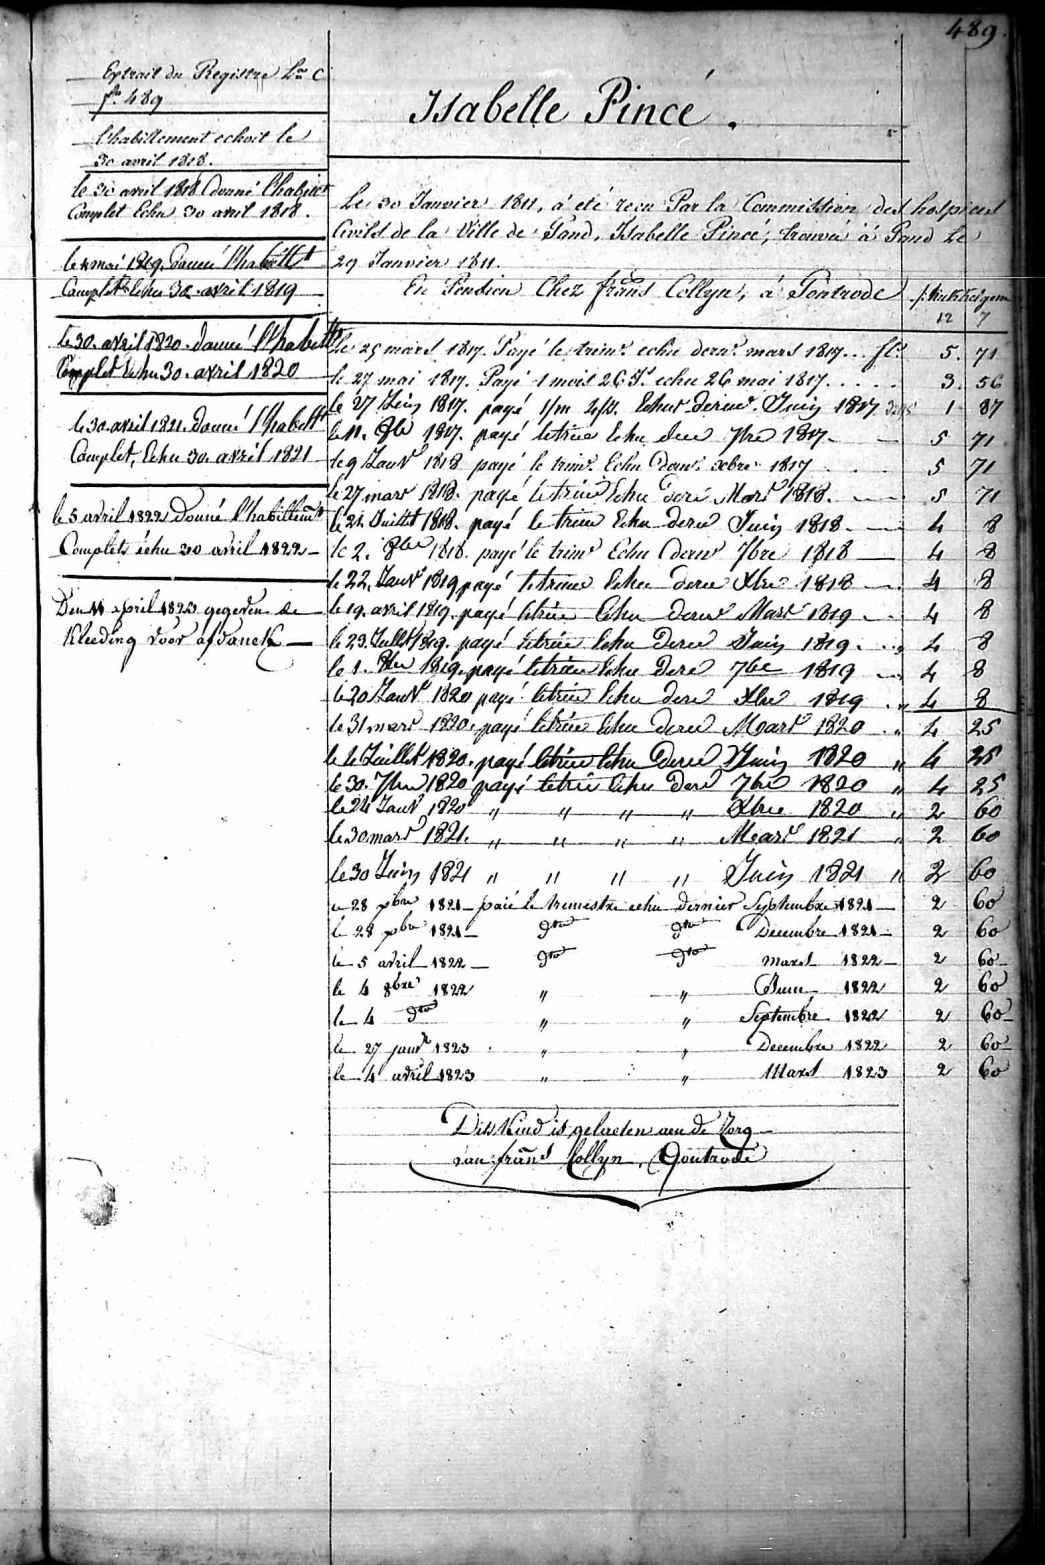 489.
Extrait du Registre Lra C
fo. 489
l'habillement echoit le
30 avril 1818.
le 30 avril 1818 donné l'habillt
Complet Echu 30 avril 1818.
le mai 1819. donné l'habillt
Complet Echu 30 avril 1819
le 30. avril 1820. donné l'habillt
Complet Echu 30. avril 1820
le 30. avril 1821. donné l'habillt
Complet, Echu 30. avril 1821
le 5 avril 1822 Donné l'habillemt
Complet, échu 30 avril 1822 —
Den 11 april 1823 gegeven de
Kleeding voor afdanck —
Isabelle Pincé.
Le 30 Janvier 1811, a été recu Par la Commission des hospices
Civils de la Ville de Gand, Isabelle Pincé, trouvée à Gand Le
29 Janvier 1811.
En Pension Chez frans Collyn, à Gontrode
12 7
le 25 mars 1817. Payé le trimr. echu dernr. mars 1817.. fls 5. 71
le 27 mai 1817. Payé 1 mois 26 Js echu 26 mai 1817. . . . . 3. 56
le 27 Juin 1817. payé 1/m Echu dernr. Juin 1817 1 87
le 11. 8bre 1817. payé le trim Echu der 7bre 1817. — 5 71
le 9 Janvr 1818 payé le trimr. Echu dernr. xbre 1817 . . . 5 71
le 27 mars 1818. payé le trim Echu derr Mars 1818. — 5 71
le 21. Juillet 1818. payé le trim Echu derr Juin 1818. — 4 8
le 2. 8bre 1818. payé le trimr Echu dernr 7bre 1818 — 4 8
le 22, Janvr 1819 payé le trim Echu derr Xbre 1818 — 4 8
le 19. avril 1819. payé le trim Echu dernr Mars 1819 . — 4 8
le 23. Juillt 1819. payé le trim Echu Derr Juin 1819. . . „ 4 8
le 1. 8bre 1819. payé le trim Echu Derr 7bre 1819 — 4 8
le 20 Janvr 1820 payé le trim Echu derr Xbre 1819 . „ 4 8
le 31 mars 1820. payé le trim Echu derr Mars 1820 „ 4 25
le 4 Juillet 1820. payé le trim Echu Derr Juin 1820 „ 4 25
le 30. 7bre 1820 payé le trim Echu Derr 7bre 1820 „ 4 25
le 24 Janvr 1820 „ „ „ „ Xbre 1820 „ 2 60
le 30 mars 1821. „ „ „ „ Mars 1821 „ 2 60
le 30 Juin 1821 „ „ „ „ Juin 1821 „ 2 60
le 28 xbre 1821 — paié le trimestre echu dernier Septembre 1821 — 2 60
le 28 xbre 1821 — dto dto Decembre 1821 — 2 60
le 5 avril 1822 — dto dto mars 1822 — 2 60
le 4 8bre 1822 „ „ Juin 1822 2 60
le 4 dto „ „ Septembre 1822 2 60
le 27 janvr 1823 „ „ Decembre 1822 2 60
le 4 avril 1823 „ „ Mars 1823 2 60
Dits Kind is gelaeten aen de Zorg
van frans Collyn, Gontrode